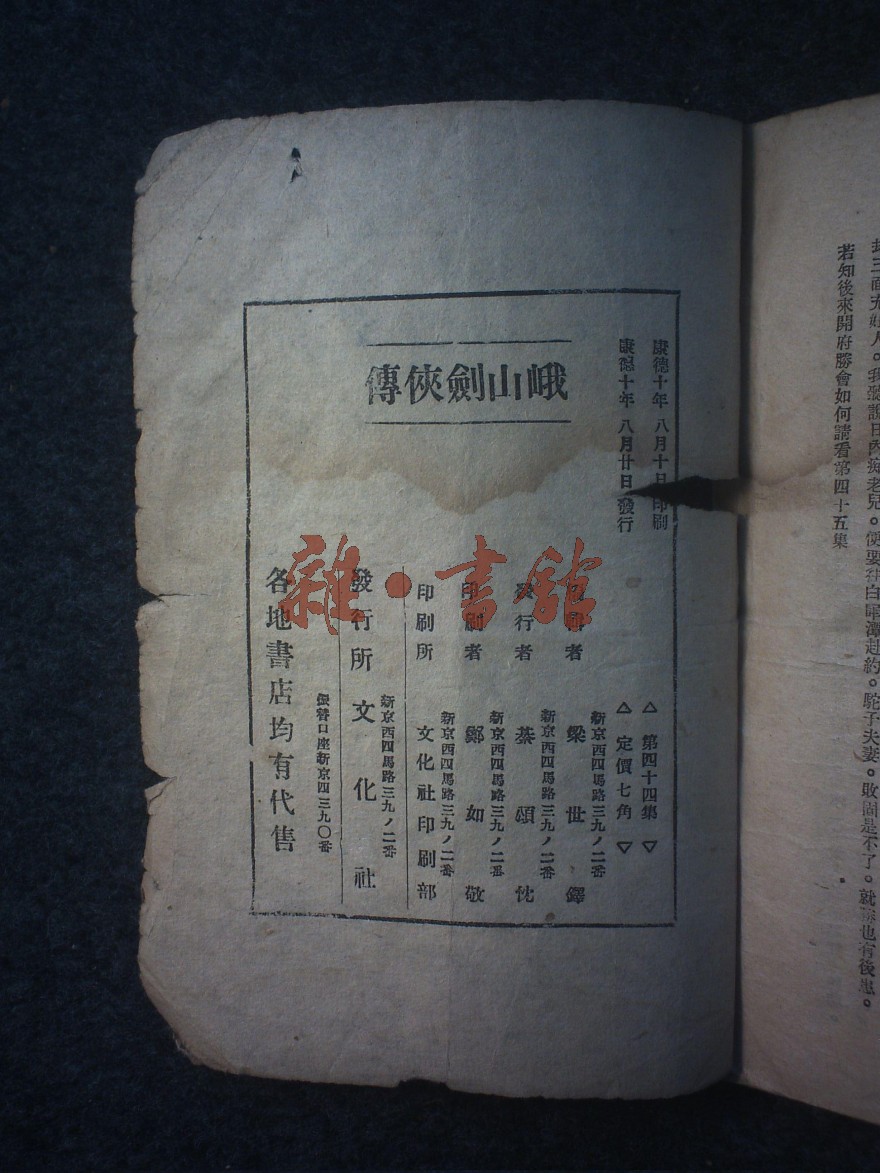 封三面充好人。我聽說日內痴老兒。便要往白犀潭赴約。駝子夫妻。敗固是不了。就勝也有後患。
若知後來開府勝會如何請看第四十五集
康德十年 八月十日 印刷
康德十年 八月廿日 發行
峨山劍俠傳
△ 第四十四集 ▽
△ 定價七角 ▽
新京西四馬路三九ノ二番
者 梁世鐸
新京西四馬路三九ノ二番
發行者 蔡頌忱
新京西四馬路三九ノ二番
印刷者 鄭如敬
新京西四馬路三九ノ二番
印刷所 文化社印刷部
新京西四馬路三九ノ二番
發行所 文化社
振替口座新京四三九〇番
各地書店均有代售
雜·書館